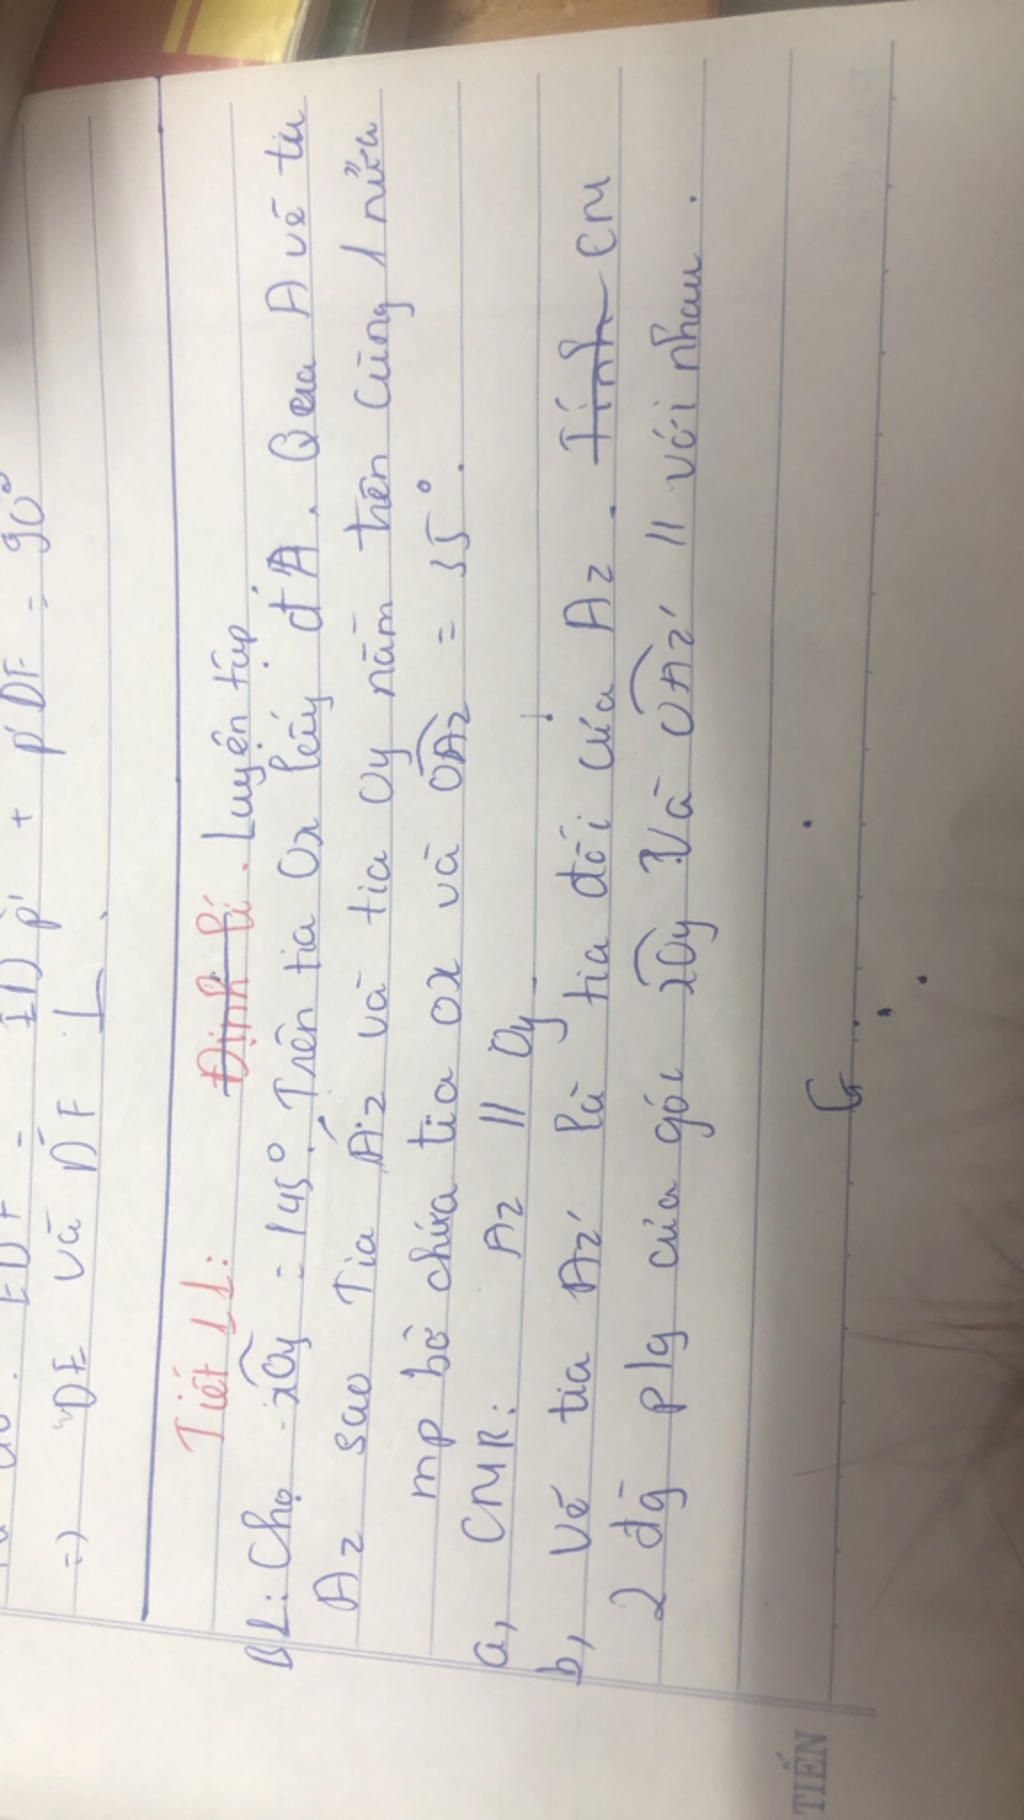 EDF = EDP' + P'DF = 90°
=) DE và DF ⊥
Tiết 11: Định lí. Luyện tập
B1: Cho xOy = 145°. Trên tia Ox lấy đ A. Qua A vẽ tia
Az sao Tia Az và tia Oy nằm trên cùng 1 nửa
mp bờ chứa tia ox và OAz = 35°.
a, CMR: Az // Oy
b, Vẽ tia Az' là tia đối của Az. Tính CM
2 đg p/g của góc xOy và OAz' // với nhau.
TIẾN